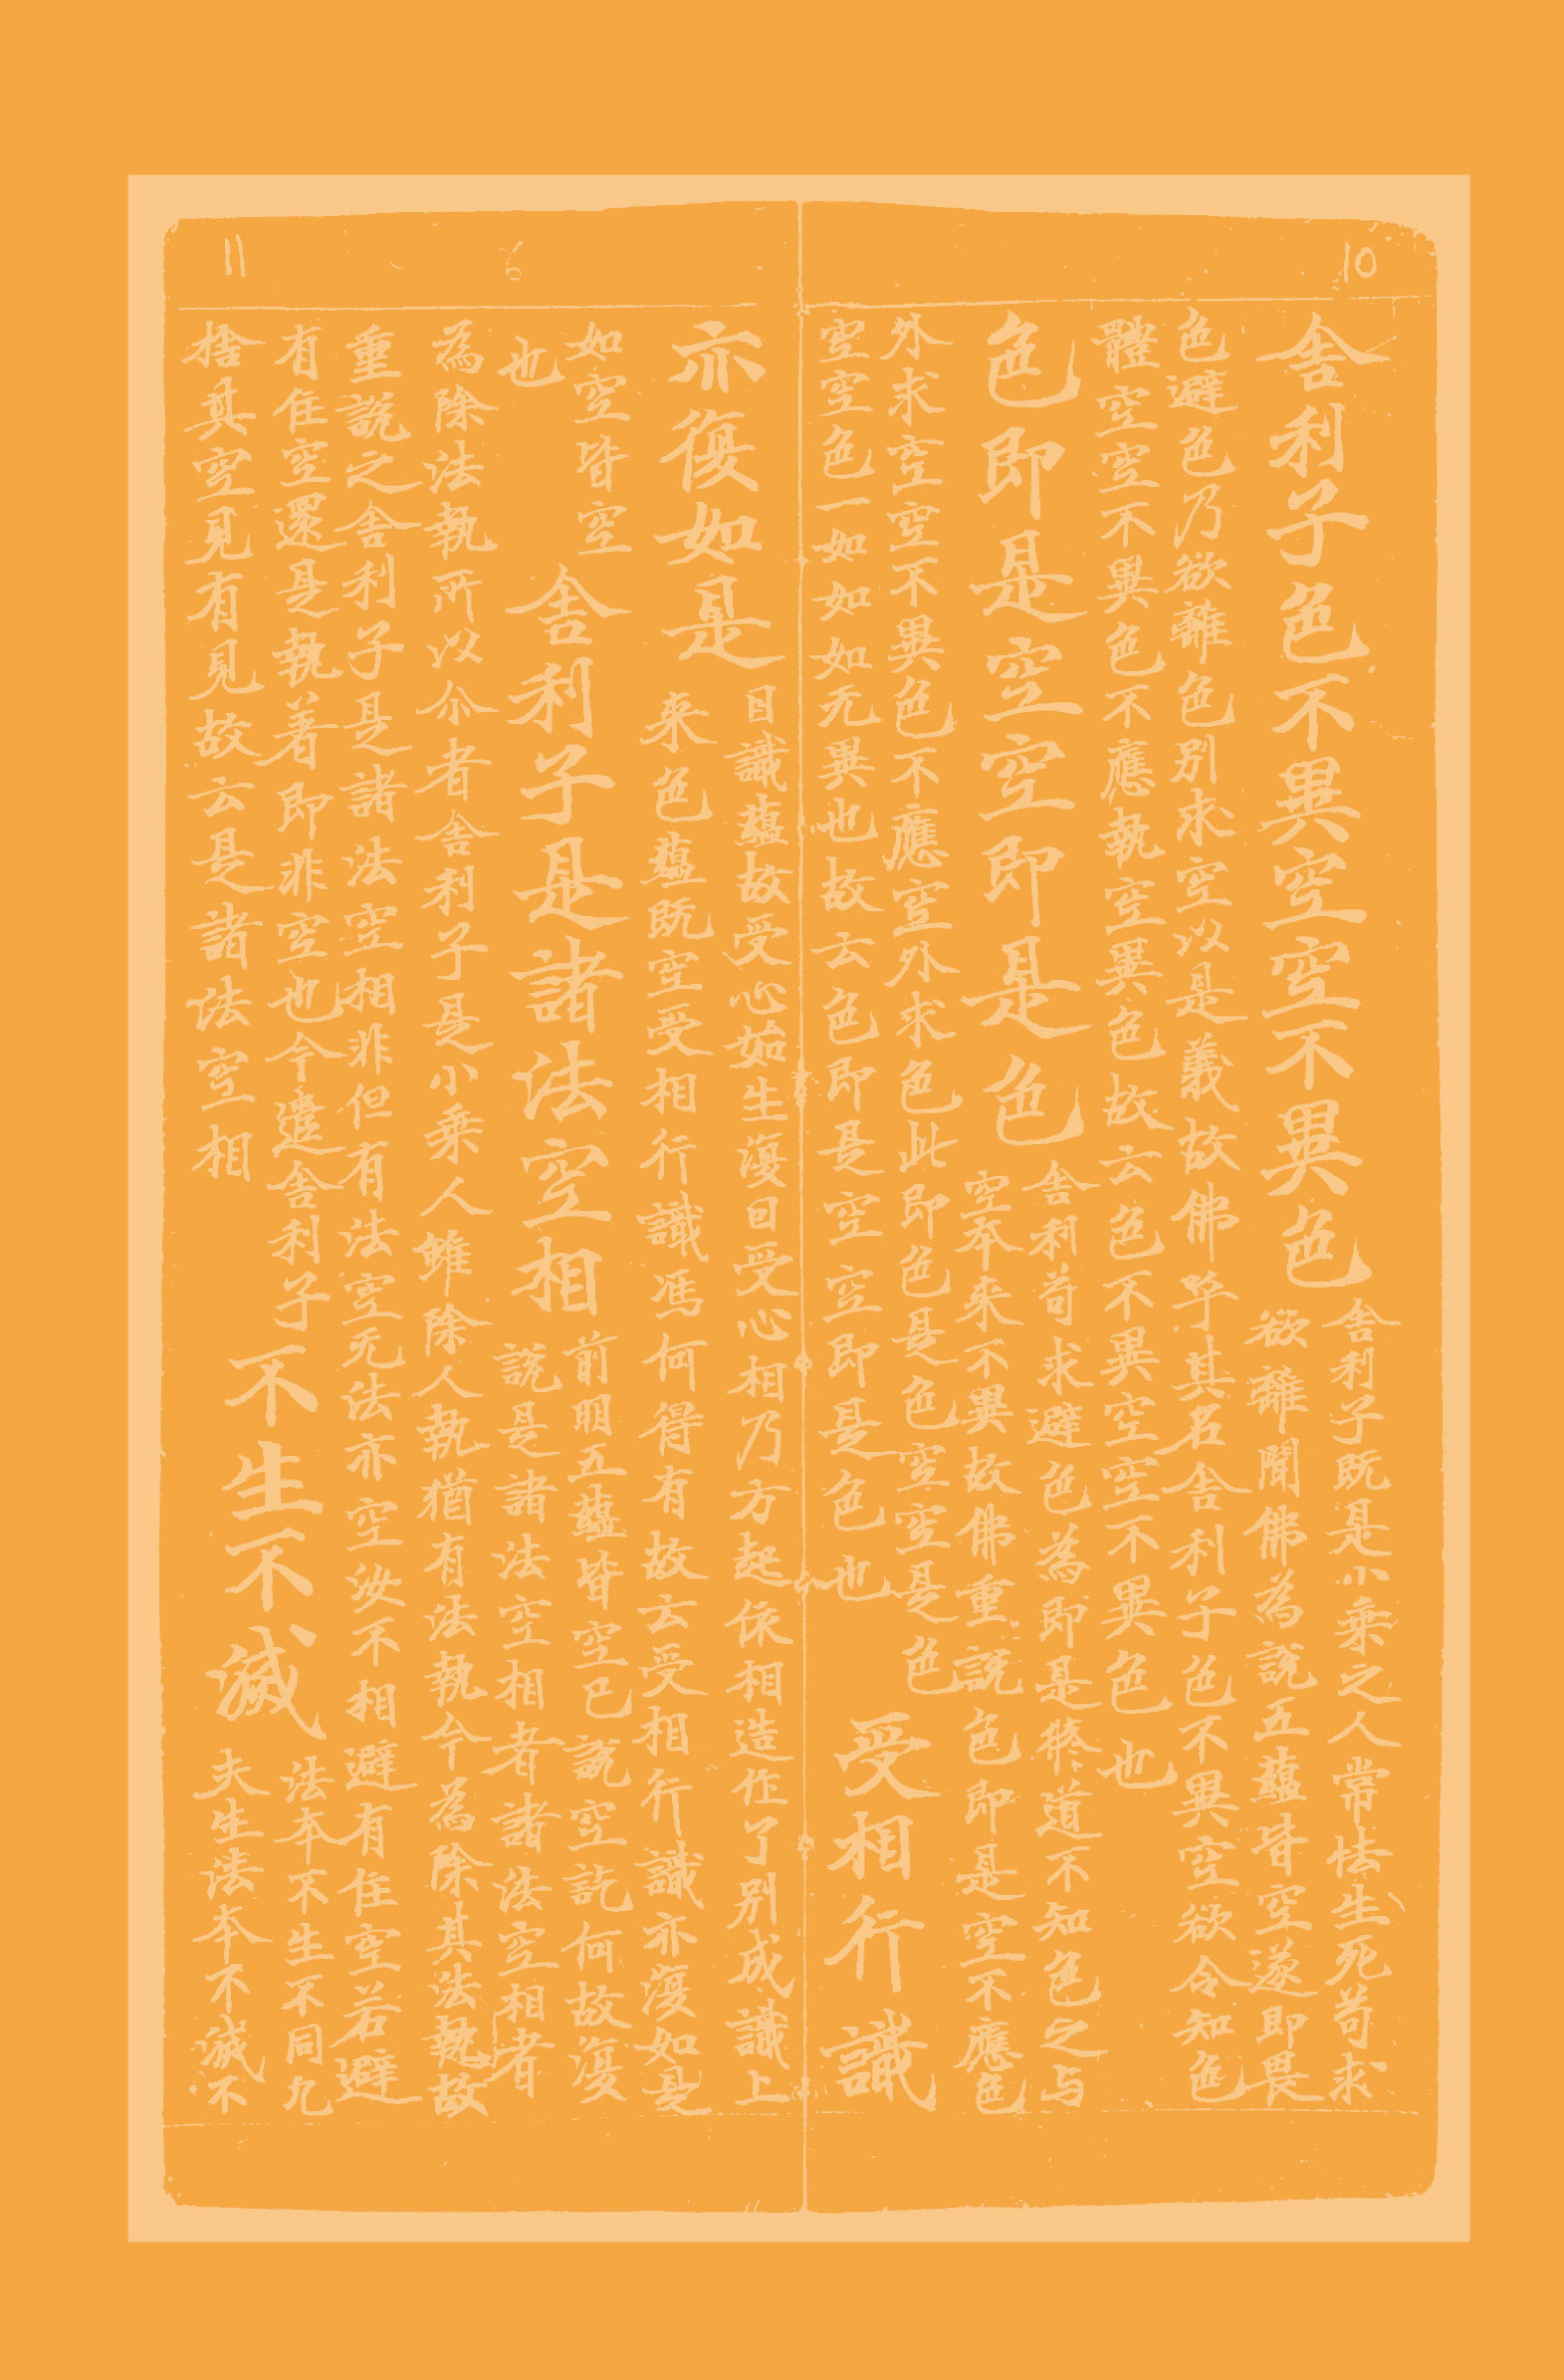 10
舍利子色不異空空不異色
舍利子既是小乘之人常怯生死苟求
欲離聞佛為說五蘊皆空遂即畏
色避色乃欲離色別求空以是義故佛呼其名舍利子色不異空欲令知色
體空空不異色不應執空異色故云色不異空空不異色也
色即是空空即是色
舍利苟求避色為即是修道不知色之与
空本来不異故佛重說色即是空不應色
外求空空不異色不應空外求色此即色是色空空是色
空空色一如如如无異也故云色即是空空即是色也
受相行識
11
6
亦復如是
因識蘊故受心始生復因受心相乃方起依相造作了別成識上
来色蘊既空受相行識馮何得有故云受相行識亦復如是
如空皆空
也
舍利子是諸法空相
前明五蘊皆空已說空訖何故復
說是諸法空相者諸法空相者
為除法執所以尒者舍利子是小乘人雖除人執猶有法執今為除其法執故
重說之舍利子是諸法空相非但有法空无法亦空汝不相避有住空若避
有住空還是執著即非空也今遣舍利子
捨其空見有見故云是諸法空相
不生不滅
法本不生不同九
夫生法本不滅不